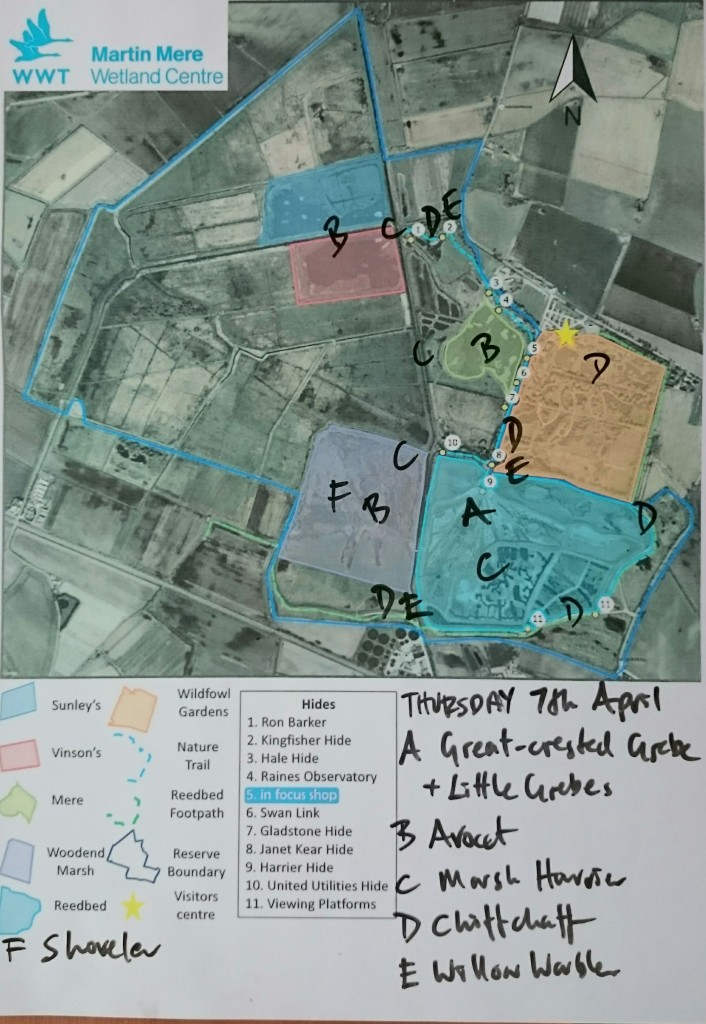 WWT
Martin Mere
Wetland Centre
N
B C 1 D 2 E
3
4
C B 5 D
6
7
D
C 10 8 E
9
F B A D
C
D E 11 D 11
Sunley's
Wildfowl Gardens
Vinson's
Nature Trail
Mere
Reedbed Footpath
Woodend Marsh
Reserve Boundary
Reedbed
Visitors centre
F Shoveler
Hides
1. Ron Barker
2. Kingfisher Hide
3. Hale Hide
4. Raines Observatory
5. in focus shop
6. Swan Link
7. Gladstone Hide
8. Janet Kear Hide
9. Harrier Hide
10. United Utilities Hide
11. Viewing Platforms
THURSDAY 7th April
A Great-crested Grebe
+ Little Grebes
B Avocet
C Marsh Harrier
D Chiffchaff
E Willow Warbler